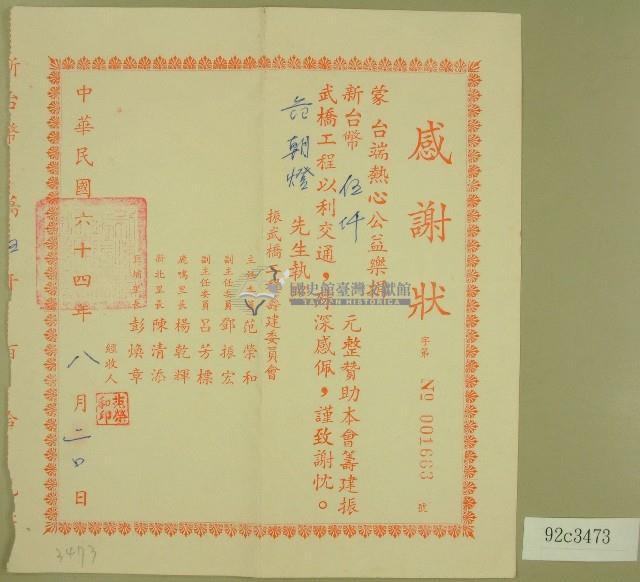 感謝狀
字第 No 001663 號
蒙 台端熱心公益樂捐
新台幣 伍仟 元整贊助本會籌建振
武橋工程以利交通,深感佩,謹致謝忱。
范朝燈 先生執
振武橋籌建委員會
主 范榮和
副主任委員 鄧振宏
副主任委員 呂芳標
鹿鳴里長 楊乾輝
新北里長 陳清添
埔里長 彭煥章
經收人
中華民國六十四年八月二日
新台幣
國史館臺灣文獻館
TAIWAN HISTORICA
3473
92c3473